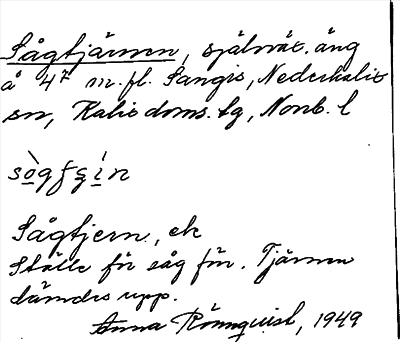 Sågtjärnen, självät. äng
å 4² m.fl. Sangis, Nederkalix
sn, Kalix doms. lg, Norrb. l
Sågtjern, ek
Ställe för såg för. Tjärnen
dämdes upp.
Anna Rönnquist, 1949